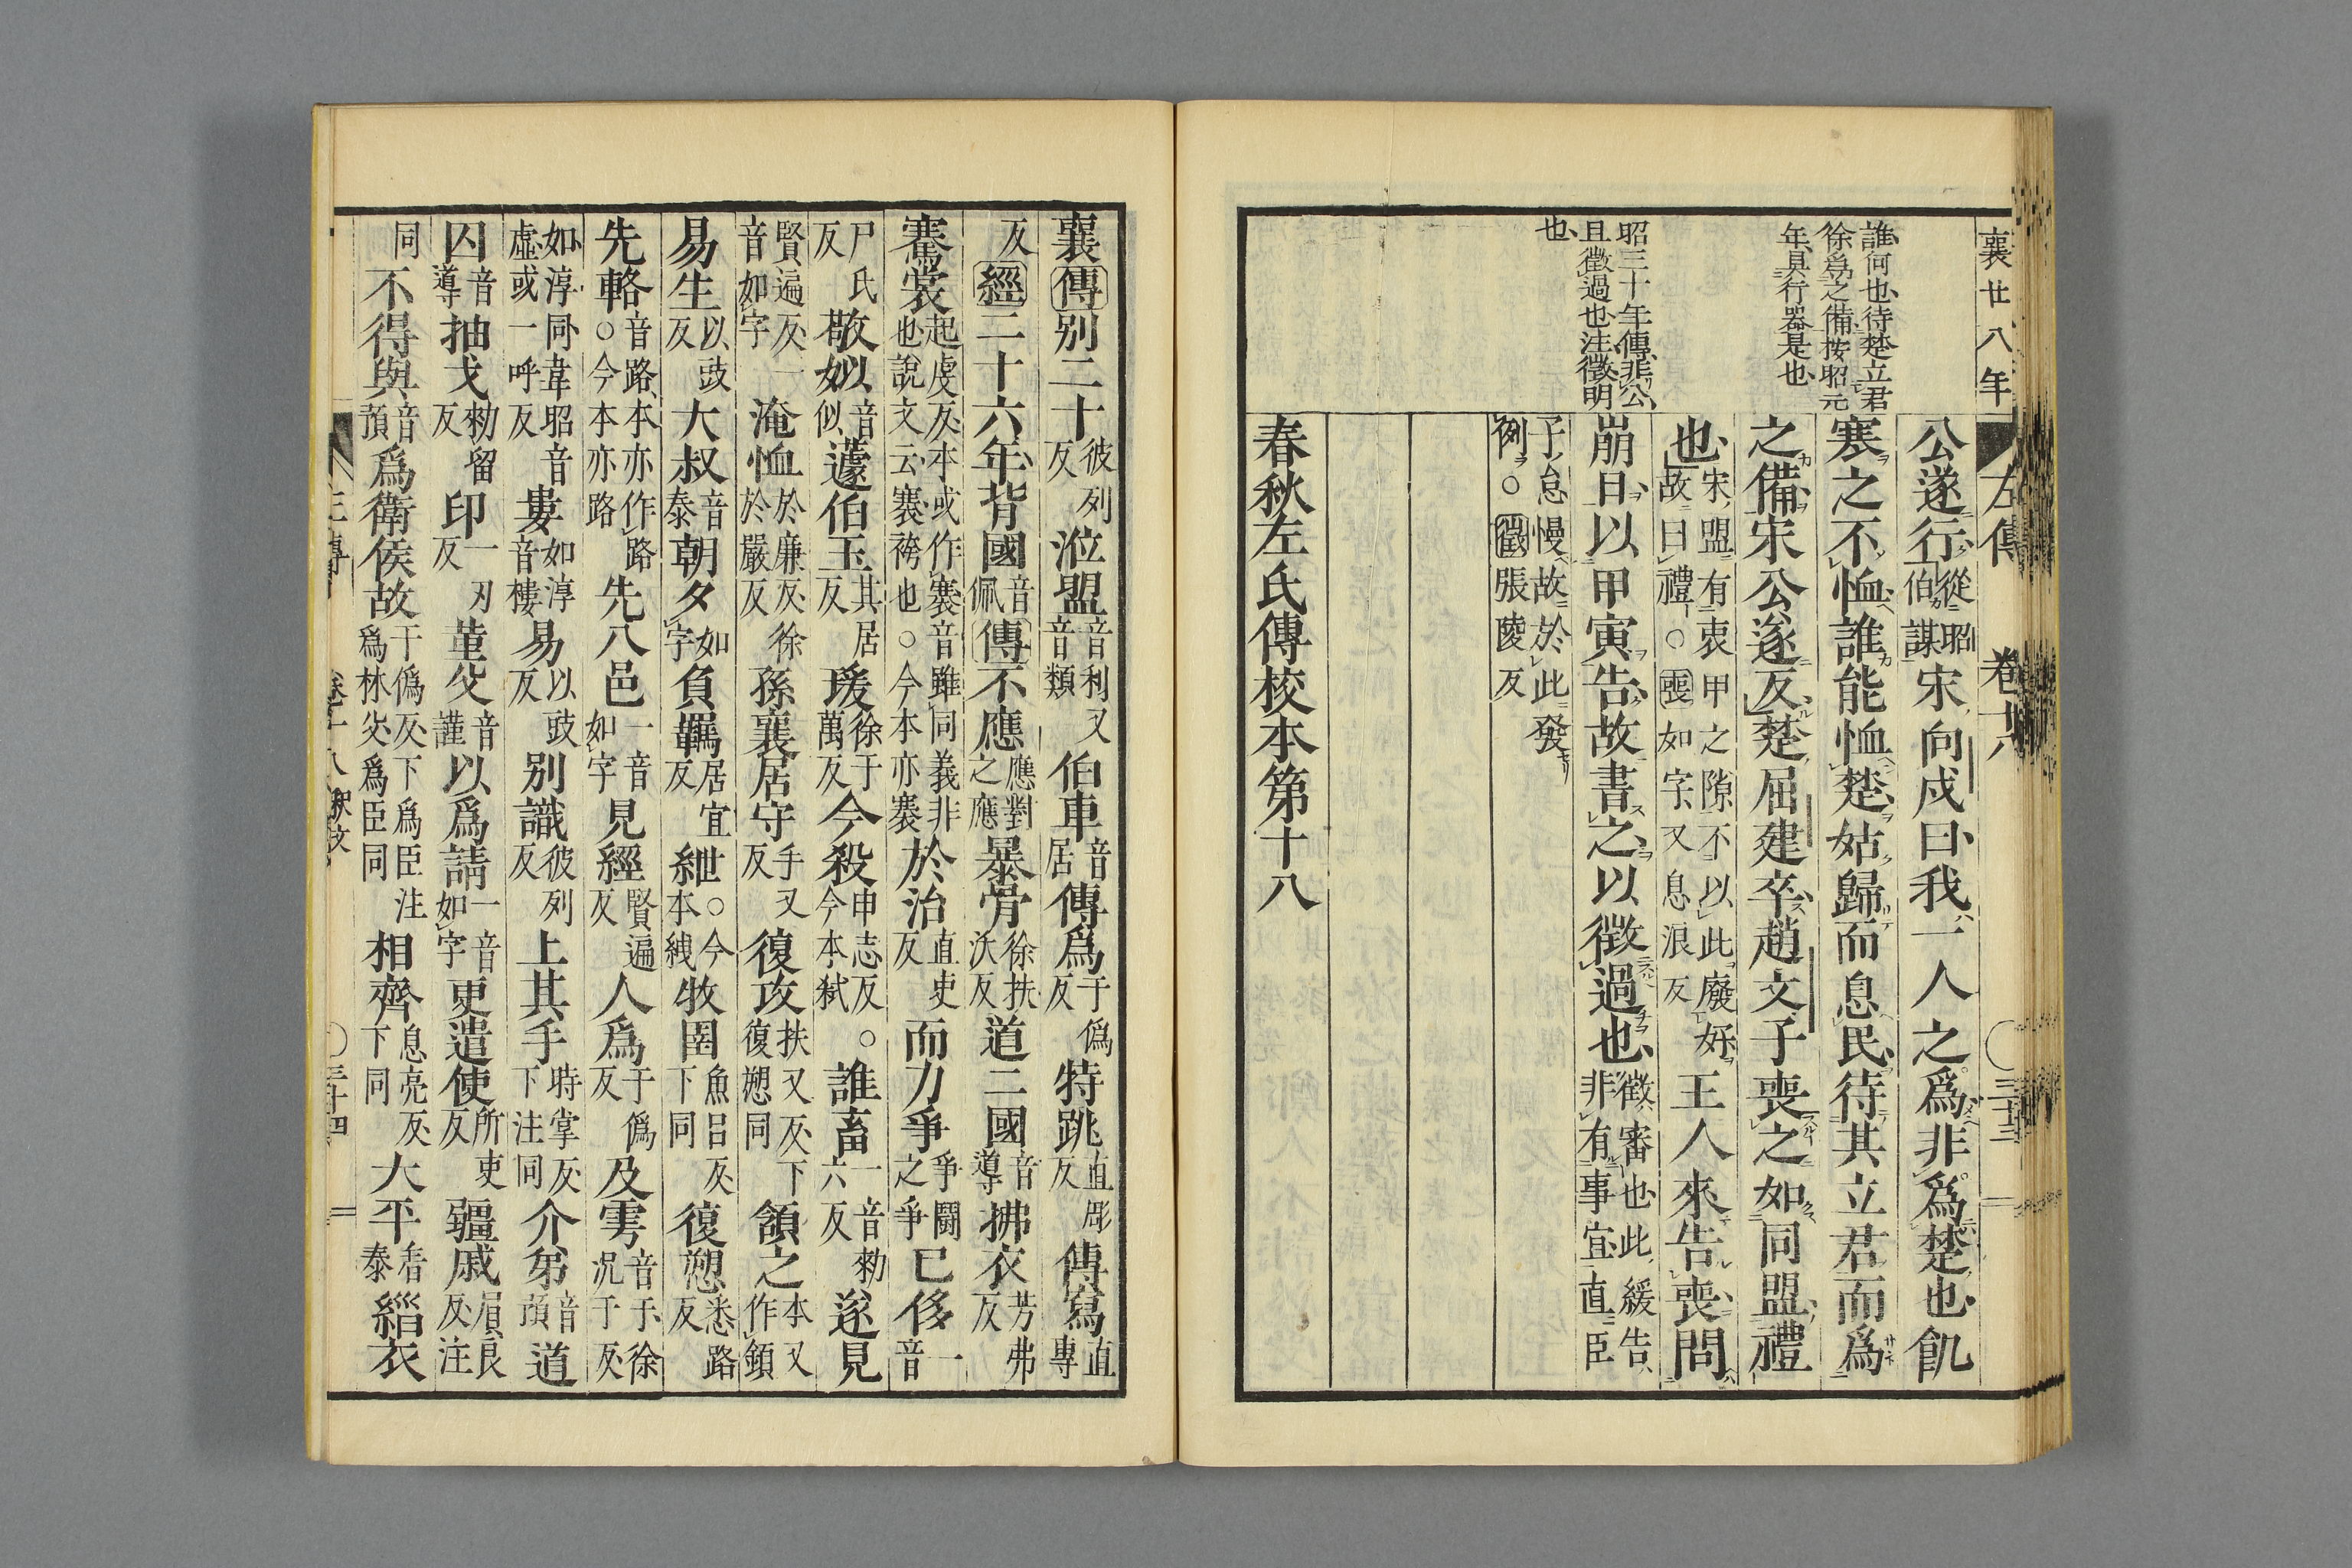 襄廿八年
左傳 卷十八 三十三
誰何也待楚立君
徐爲之備按昭元
年具行器是也
昭三十年傳非公
且徵過也注徵明
也
公遂行從昭伯謀宋向戌曰我一人之爲非爲楚也飢
寒之不恤誰能恤楚姑歸而息民待其立君而爲
之備宋公遂反楚屈建卒趙文子喪之如同盟禮
也宋盟有衷甲之隙不以此廢好故曰禮○喪如字又息浪反王人來告喪問
崩日以甲寅告故書之以徵過也徵審也此緩告非有事宜直臣
子怠慢故於此發例○徵張陵反
春秋左氏傳校本第十八
襄傳別二十彼列反涖盟音利又音類伯車音居傳爲于僞反特跳直彫反傳寫直專
反經二十六年背國音佩傳不應應對之應暴骨徐扶沃反道二國音導拂衣芳弗反
褰裳起虔反本或作褰音雖同義非也說文云褰袴也○今本亦褰於治直吏反而力爭爭鬬之爭已侈一音
尸氏反敬姒音似蘧伯玉其居反瑗徐于萬反今殺申志反今本弑○誰畜一音勑六反遂見
賢遍反一音如字淹恤於廉反徐於嚴反孫襄居守手又反復攻扶又反下復愬同頷之本又作顉
易生以豉反大叔音泰朝夕如字負羈居宜反紲○今本絏牧圉魚呂反下同復愬悉路反
先輅音路本亦作路○今本亦路先八邑一音如字見經賢遍反人爲于僞反及雩音于徐况于反
如淳同韋昭音虛或一呼反婁如淳音樓易以豉反別識彼列反上其手時掌反下注同介弟音道
囚音導抽戈勑留反印一刃反堇父音謹以爲請一音如字更遣使所吏反疆戚居良反注
同不得與音預爲衛侯故于僞反下爲臣注爲林父爲臣同相齊息亮反下同大平音泰緇衣